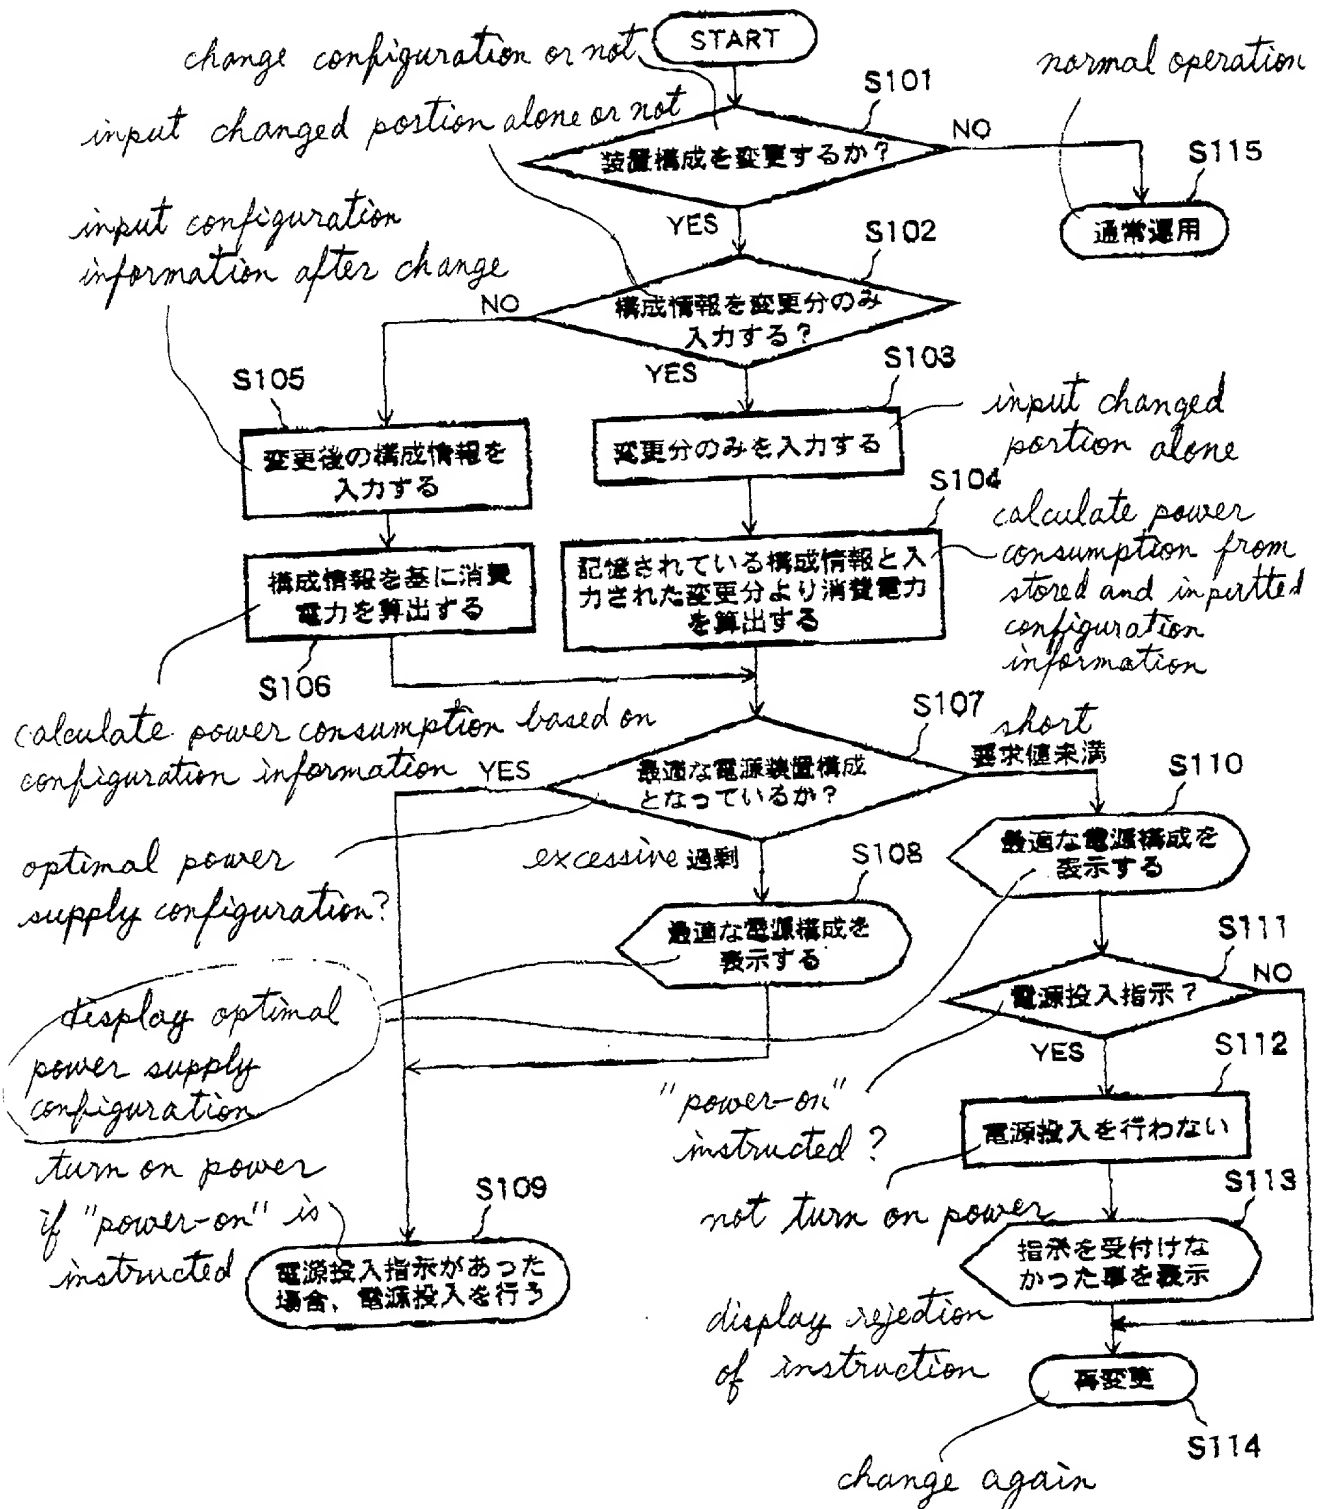 change configuration or not
START
normal operation
S101
input changed portion alone or not
装置構成を変更するか?
NO
S115
通常運用
YES
input configuration
information after change
S102
構成情報を変更分のみ
入力する?
NO
YES
S103
S105
変更後の構成情報を
入力する
変更分のみを入力する
input changed
portion alone
S104
構成情報を基に消費
電力を算出する
記憶されている構成情報と入
力された変更分より消費電力
を算出する
calculate power
consumption from
stored and inputted
configuration
information
S106
calculate power consumption based on
configuration information
S107
short
要求値未満
YES
最適な電源装置構成
となっているか?
S110
最適な電源構成を
表示する
optimal power
supply configuration?
excessive 過剰
S108
最適な電源構成を
表示する
S111
電源投入指示?
NO
YES
display optimal
power supply
configuration
"power-on"
instructed?
S112
電源投入を行わない
not turn on power
turn on power
if "power-on" is
instructed
S109
電源投入指示があった
場合、電源投入を行う
S113
指示を受付けな
かった事を表示
display rejection
of instruction
再変更
S114
change again